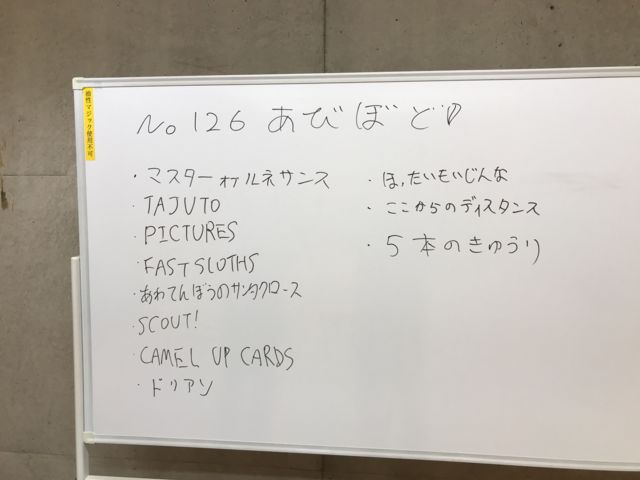 油性マジック使用不可
No 126 あびぼど♡
・マスターオブルネサンス
・TAJUTO
・PICTURES
・FAST SLOTHS
・あわてんぼうのサンタクロース
・SCOUT!
・CAMEL UP CARDS
・ドリアン
・ほ,たいもいじんな
・ここからのディスタンス
・5本のきゅうり